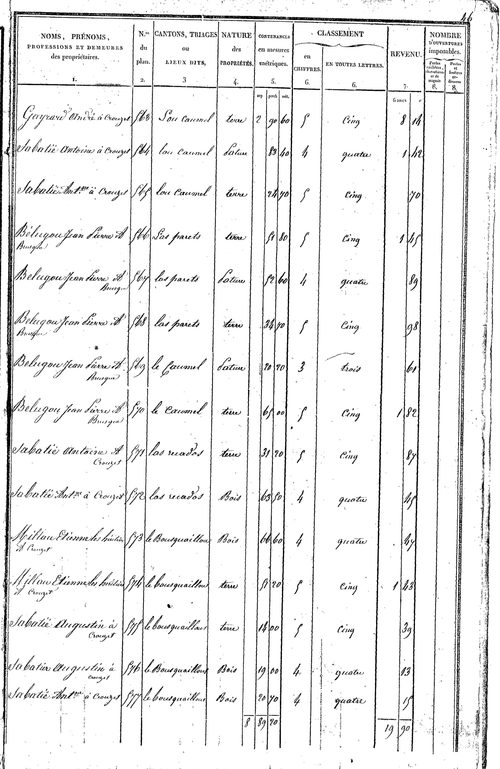 46
NOMS, PRÉNOMS, PROFESSIONS ET DEMEURES des propriétaires.
N.os du plan.
CANTONS, TRIAGES ou LIEUX DITS,
NATURE des PROPRIÉTÉS.
CONTENANCES en mesures métriques.
CLASSEMENT
en CHIFFRES.
EN TOUTES LETTRES.
REVENU.
NOMBRE D'OUVERTURES imposables.
1. 2. 3 4. 5. 6. 6. 7. 8. 8.
Gayrard André à Crouzet 563 Lou caumel terre 2 90 60 5 Cinq 8 14
Sabatié Antoine à Crouzet 564 lou caumel Pature 83 40 4 quatre 1 42
Sabatié Ant.ne à Crouzet 565 lou caumel terre 24 70 5 Cinq 70
Belugou Jean Pierre à 566 Las parets terre 51 80 5 Cinq 1 45
Belugou Jean Pierre à 567 las parets Pature 52 60 4 quatre 89
Belugou Jean Pierre à 568 las parets terre 34 70 5 Cinq 98
Belugou Jean Pierre à 569 le Caumel Pature 20 20 3 trois 61
Belugou Jean Pierre à 570 le Caumel terre 65 00 5 Cinq 1 82
Sabatié Antoine à Crouzet 571 las recados terre 31 20 5 Cinq 87
Sabatié Ant.ne à Crouzet 572 las recados Bois 63 50 4 quatre 45
Millau Etienne les héritiers à Crouzet 573 le Bousquaillou Bois 66 60 4 quatre 47
Millau Etienne les héritiers à Crouzet 574 le bousquaillou terre 51 20 5 Cinq 1 43
Sabatié Augustin à Crouzet 575 le bousquaillou terre 14 00 5 Cinq 39
Sabatié Augustin à Crouzet 576 le Bousquaillou Bois 19 00 4 quatre 13
Sabatié Ant.ne à Crouzet 577 le bousquaillou Bois 20 70 4 quatre 15
8 89 20 19 90